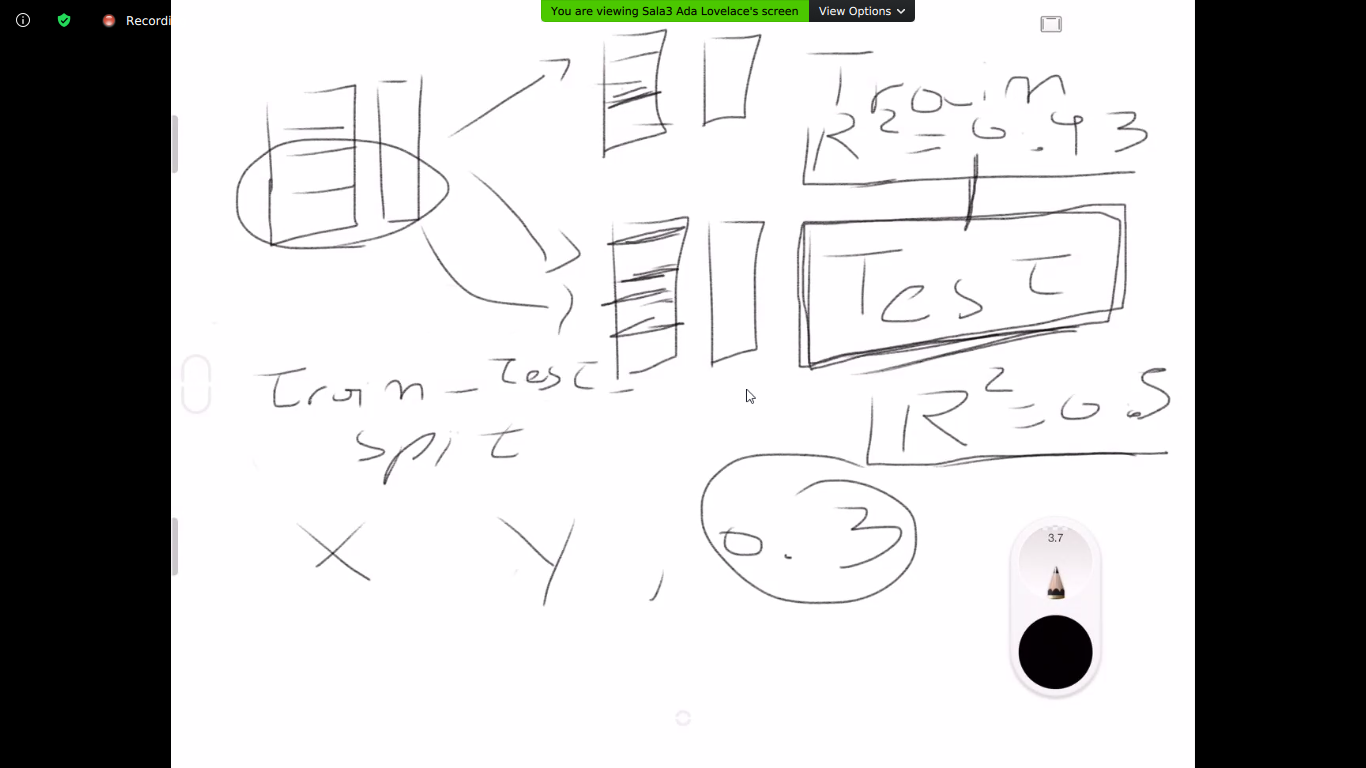 You are viewing Sala3 Ada Lovelace's screen
View Options
Recordi
Train
R²=0.93
Test
R²=0.5
Train_Test_
spit
X Y , 0.3
3.7